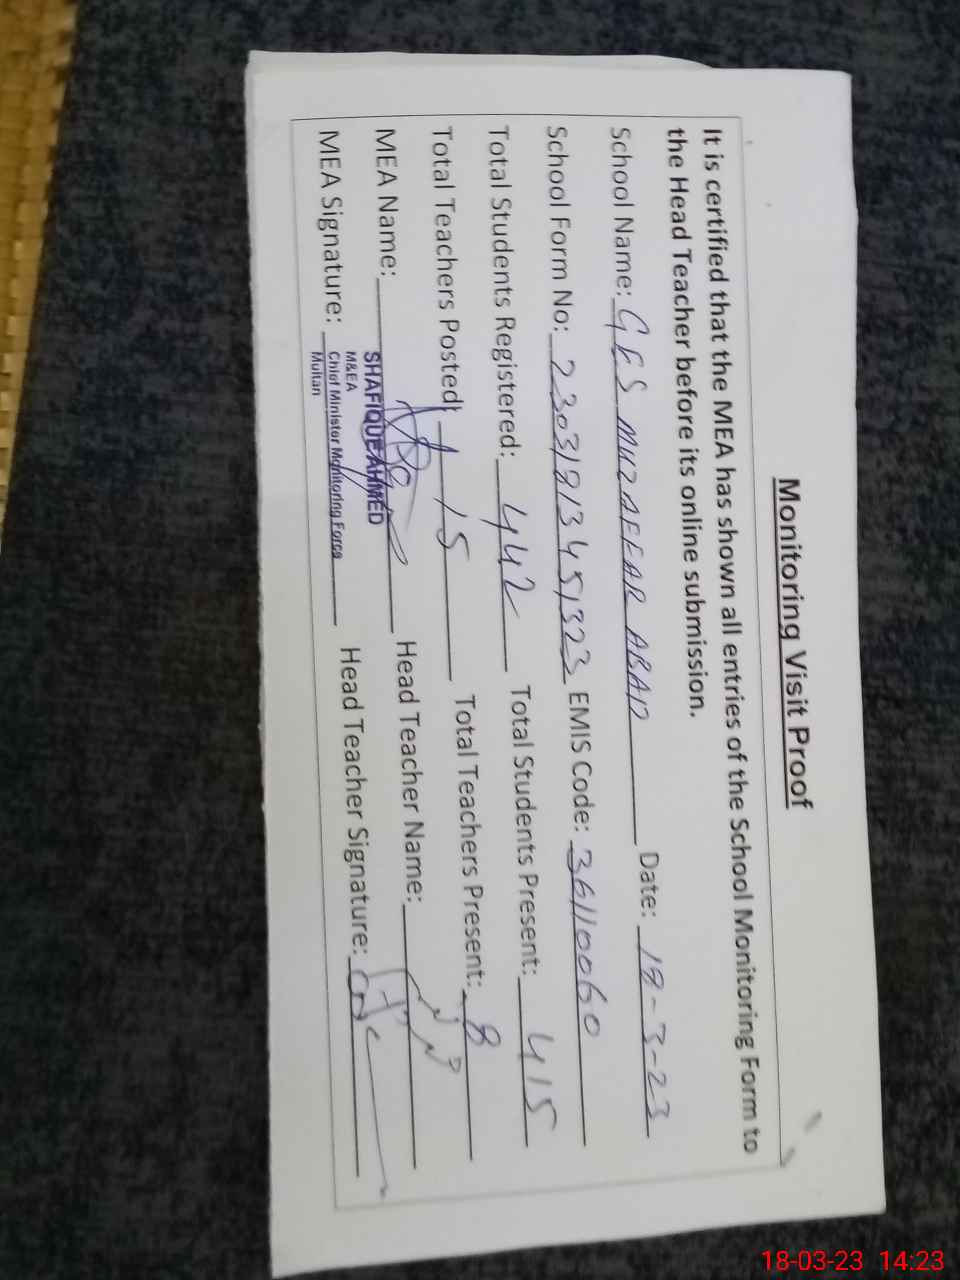 Monitoring Visit Proof
It is certified that the MEA has shown all entries of the School Monitoring Form to
the Head Teacher before its online submission.
School Name: GES MUZAFFAR ABAD Date: 18-3-23
School Form No: 23031813451323 EMIS Code: 36110060
Total Students Registered: 442 Total Students Present: 415
Total Teachers Posted: 15 Total Teachers Present: 8
MEA Name: Head Teacher Name:
SHAFIQUE AHMED
M&EA
MEA Signature: Chief Minister Monitoring Force Head Teacher Signature:
Multan
18-03-23 14:23